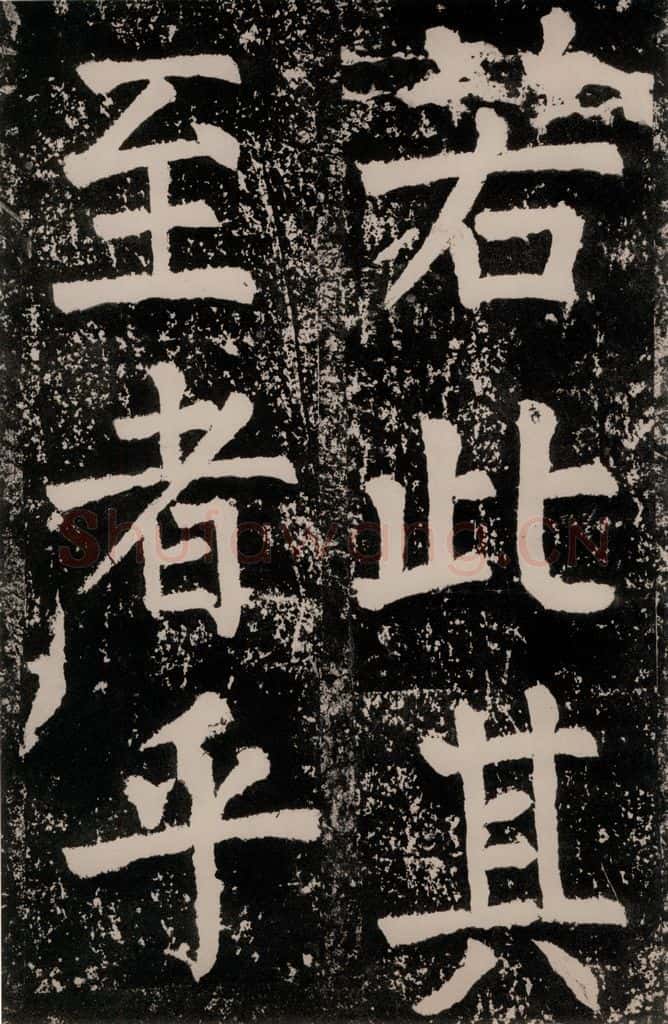 若此其
至者乎
Shufawang.CN